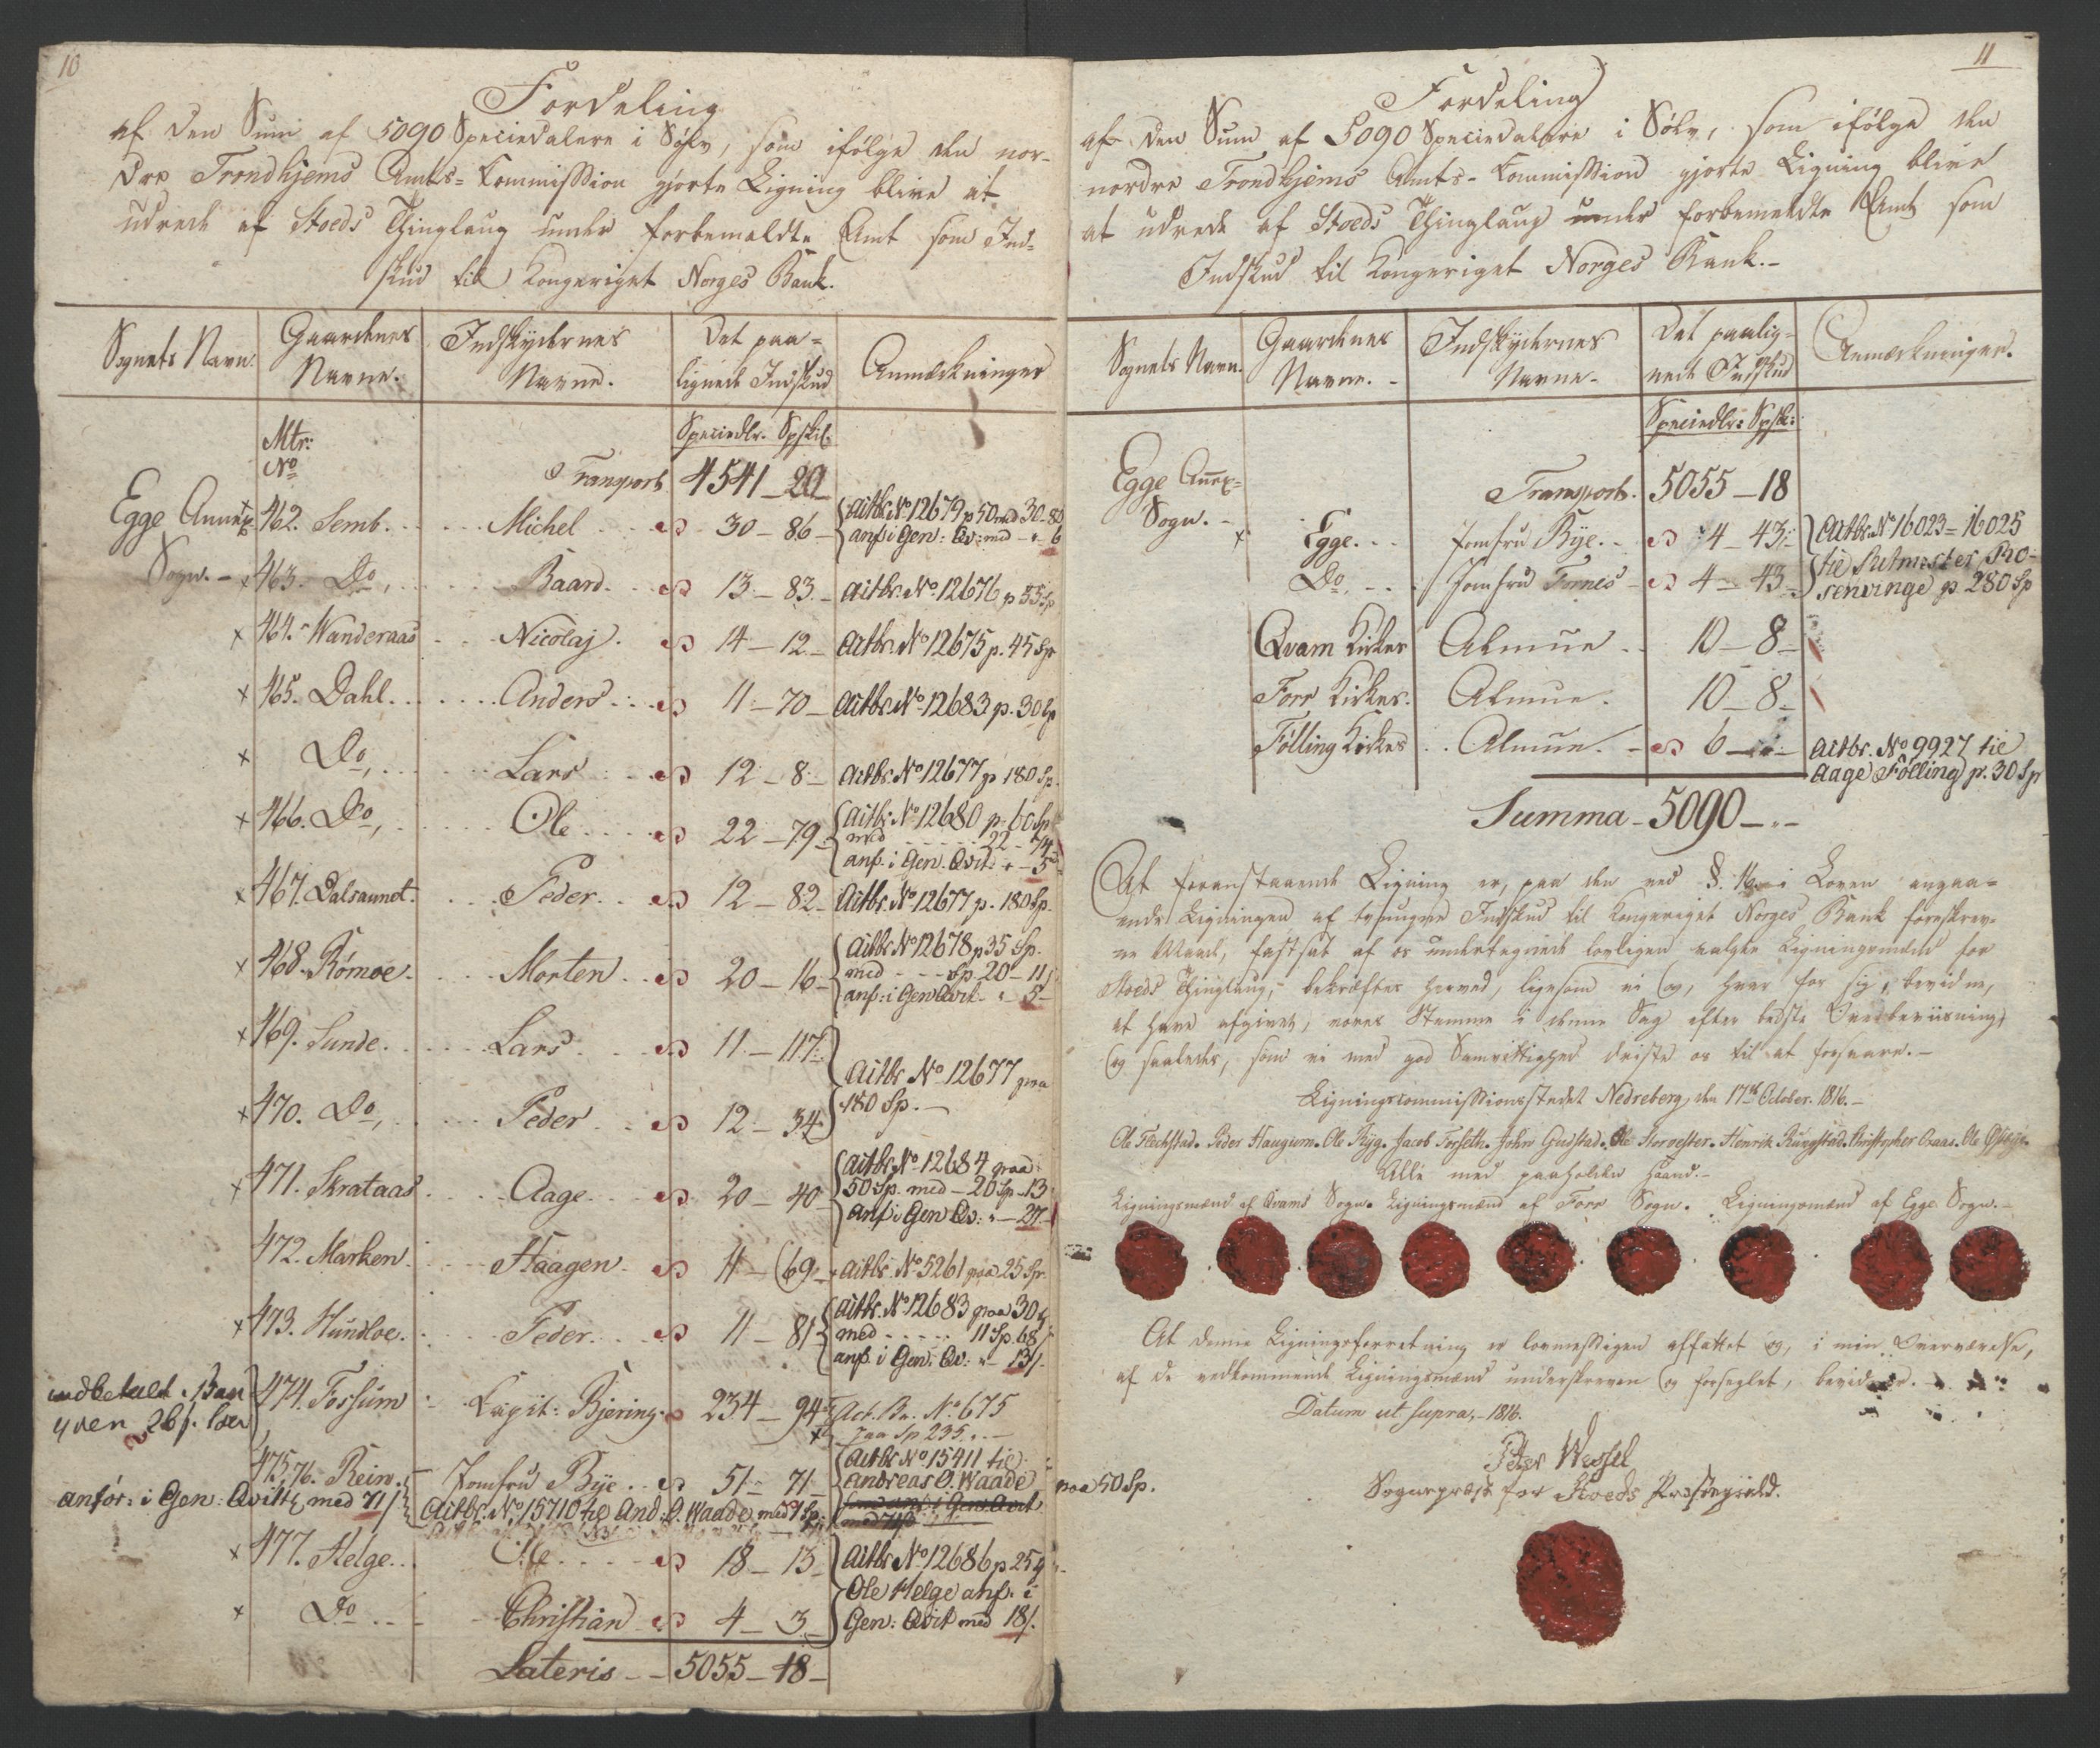 10
Fordeling
af den Sum af 5090 Speciedalere i Sølv, som ifølge den nor-
dre Trondhjems Amts-Kommission gjorte Ligning blive at
udrede af Stoeds Thinglaug under forbemeldte Amt som Ind-
skud til Kongeriget Norges Bank.
Sognets Navn. Gaardenes Navne. Indskydernes Navne. Det paa-lignede Indskud Anmærkninger
Mtr: No Speciedlr. Spskil.
Transport 4541 - 20
Egge Annex Sogn. - x 462. Semb. Michel 30 - 86 - Actbr. No 12679 p 50 med 30-80
anf i Gen: Qv: med - " 6
x 463. Do, Baard 13 - 83 - Actbr. No 12676 p 55 Sp
x 464. Wanderaas Nicolaj. 14 - 12 - Actbr. No 12675 p. 45 Sp
x 465. Dahl. Anders 11 - 70 - Actbr. No 12683 p. 30 Sp
x Do, Lars 12 - 8 - Actbr. No 12677 p 180 Sp.
x 466. Do, Ole 22 - 79 - Actbr. No 12680 p. 60 Sp
med 22 - 74
anf. i Gen. Qvit: " - 5
x 467. Dalsaunet. Peder. 12 - 82 - Actbr. No 12677 p. 180 Sp.
x 468. Rømoe. Morten 20 - 16 - Actbr. No 12678 p 35 Sp.
med - - - Sp. 20 - 11
anf: i Gen Qvit - " 5 -
x 469. Sunde. Lars 11 - 117
x 470. Do, Peder 12 - 34 Actbr No 12677 paa
180 Sp. -
x 471. Skrataas Aage 20 - 40 - Actbr. No 12684 paa
50 Sp. med - 20 Sp - 13
anf i Gen Qv: " - 27.
472. Marken Haagen 11 - 69 - Actbr. No 5261 paa 25 Sp.
x 473. Hundloe. Peder. 11 - 81 Actbr. No 12683 paa 30 Sp
med - - - - 11 Sp. 68
anf. i Gen: Qv: " - 13/.
474. Fossum Capit: Bjering. 234 - 94 Act. Br. No 675
paa Sp 235. " -
indbetalt i Ban
475.76. Rein. Jomfru Bye 51 - 71 - Actbr No 15411 til
Andreas O. Waade paa 50 Sp.
anfør: i Gen: Qvitt med 71/
Actbr. No 15710 til And: O. Waade med 1 Sp:
x 477. Helge. Ole 18 - 13 - Actbr No 12686 p 25
x Do Christian 4 - 3 - Ole Helge anf. i
Gen: Qvit med 18/.
Lateris - - 5055 - 18 -
11
Fordeling
af den Sum af 5090 Speciedalere i Sølv, som ifølge den
nordre Trondhjems Amts-Kommission gjorte Ligning blive
at udrede af Stoeds Thinglaug under forbemeldte Amt som
Indskud til Kongeriget Norges Bank.-
Sognets Navn. Gaardenes Navne. - Indskydernes Navne - Det paalig-nede Indskud Anmærkninger.
Speciedlr: Spsk:
Transport. 5055 - 18
Egge Annex-Sogn. - x Egge. Jomfru Bye. 4 - 43 Actbr. No 16023 = 16025
Do, Jomfru Finnes 4 - 43 til Ritmester Ro-
senvinge p. 280 Sp
Qvam Kirkes Almue 10 - 8 -
Forr Kirkes. Almue. 10 - 8 -
Følling Kirkes Almue. 6 - " - Actbr. No 9927 til
Aage Følling p. 30 Sp
Summa - 5090 - " -
At foranstaaende Ligning er, paa den ved §. 16 i Loven angaa-
ende Ligningen af tvungne Indskud til Kongeriget Norges Bank foreskrev-
ne Maade, fastsat af os undertegnede lovligen valgte Ligningsmænd for
Stoeds Thinglaug, bekræftes herved, ligesom vi og, hver for sig, bevidne,
at have afgivet, vores Stemme i denne Sag efter bedste Overbeviisning,
og saaledes, som vi med god Samvittighed driste os til at forsvare. -
Ligningscommissionsstedet Nedreberg, den 17de October. 1816. -
Ole Flechstad. Peder Haugum. Ole Ryg. Jacob Forseth. John Gudstad. Ole Storoester. Henrik Rungstad. Christopher Oxaas. Ole
Alle med paaholden Haand. -
Ligningsmænd af Qvams Sogn. Ligningsmænd af Forr Sogn. Ligningsmænd af Egge Sogn. -
At denne Ligningsforretning er lovmessigen affattet og, i min Overværelse,
af de vedkommende Ligningsmænd underskreven og forseglet, bevidner.
Datum ut supra, - 1816.
Peter Wessel
Sognepræst for Stoeds Præstegield.